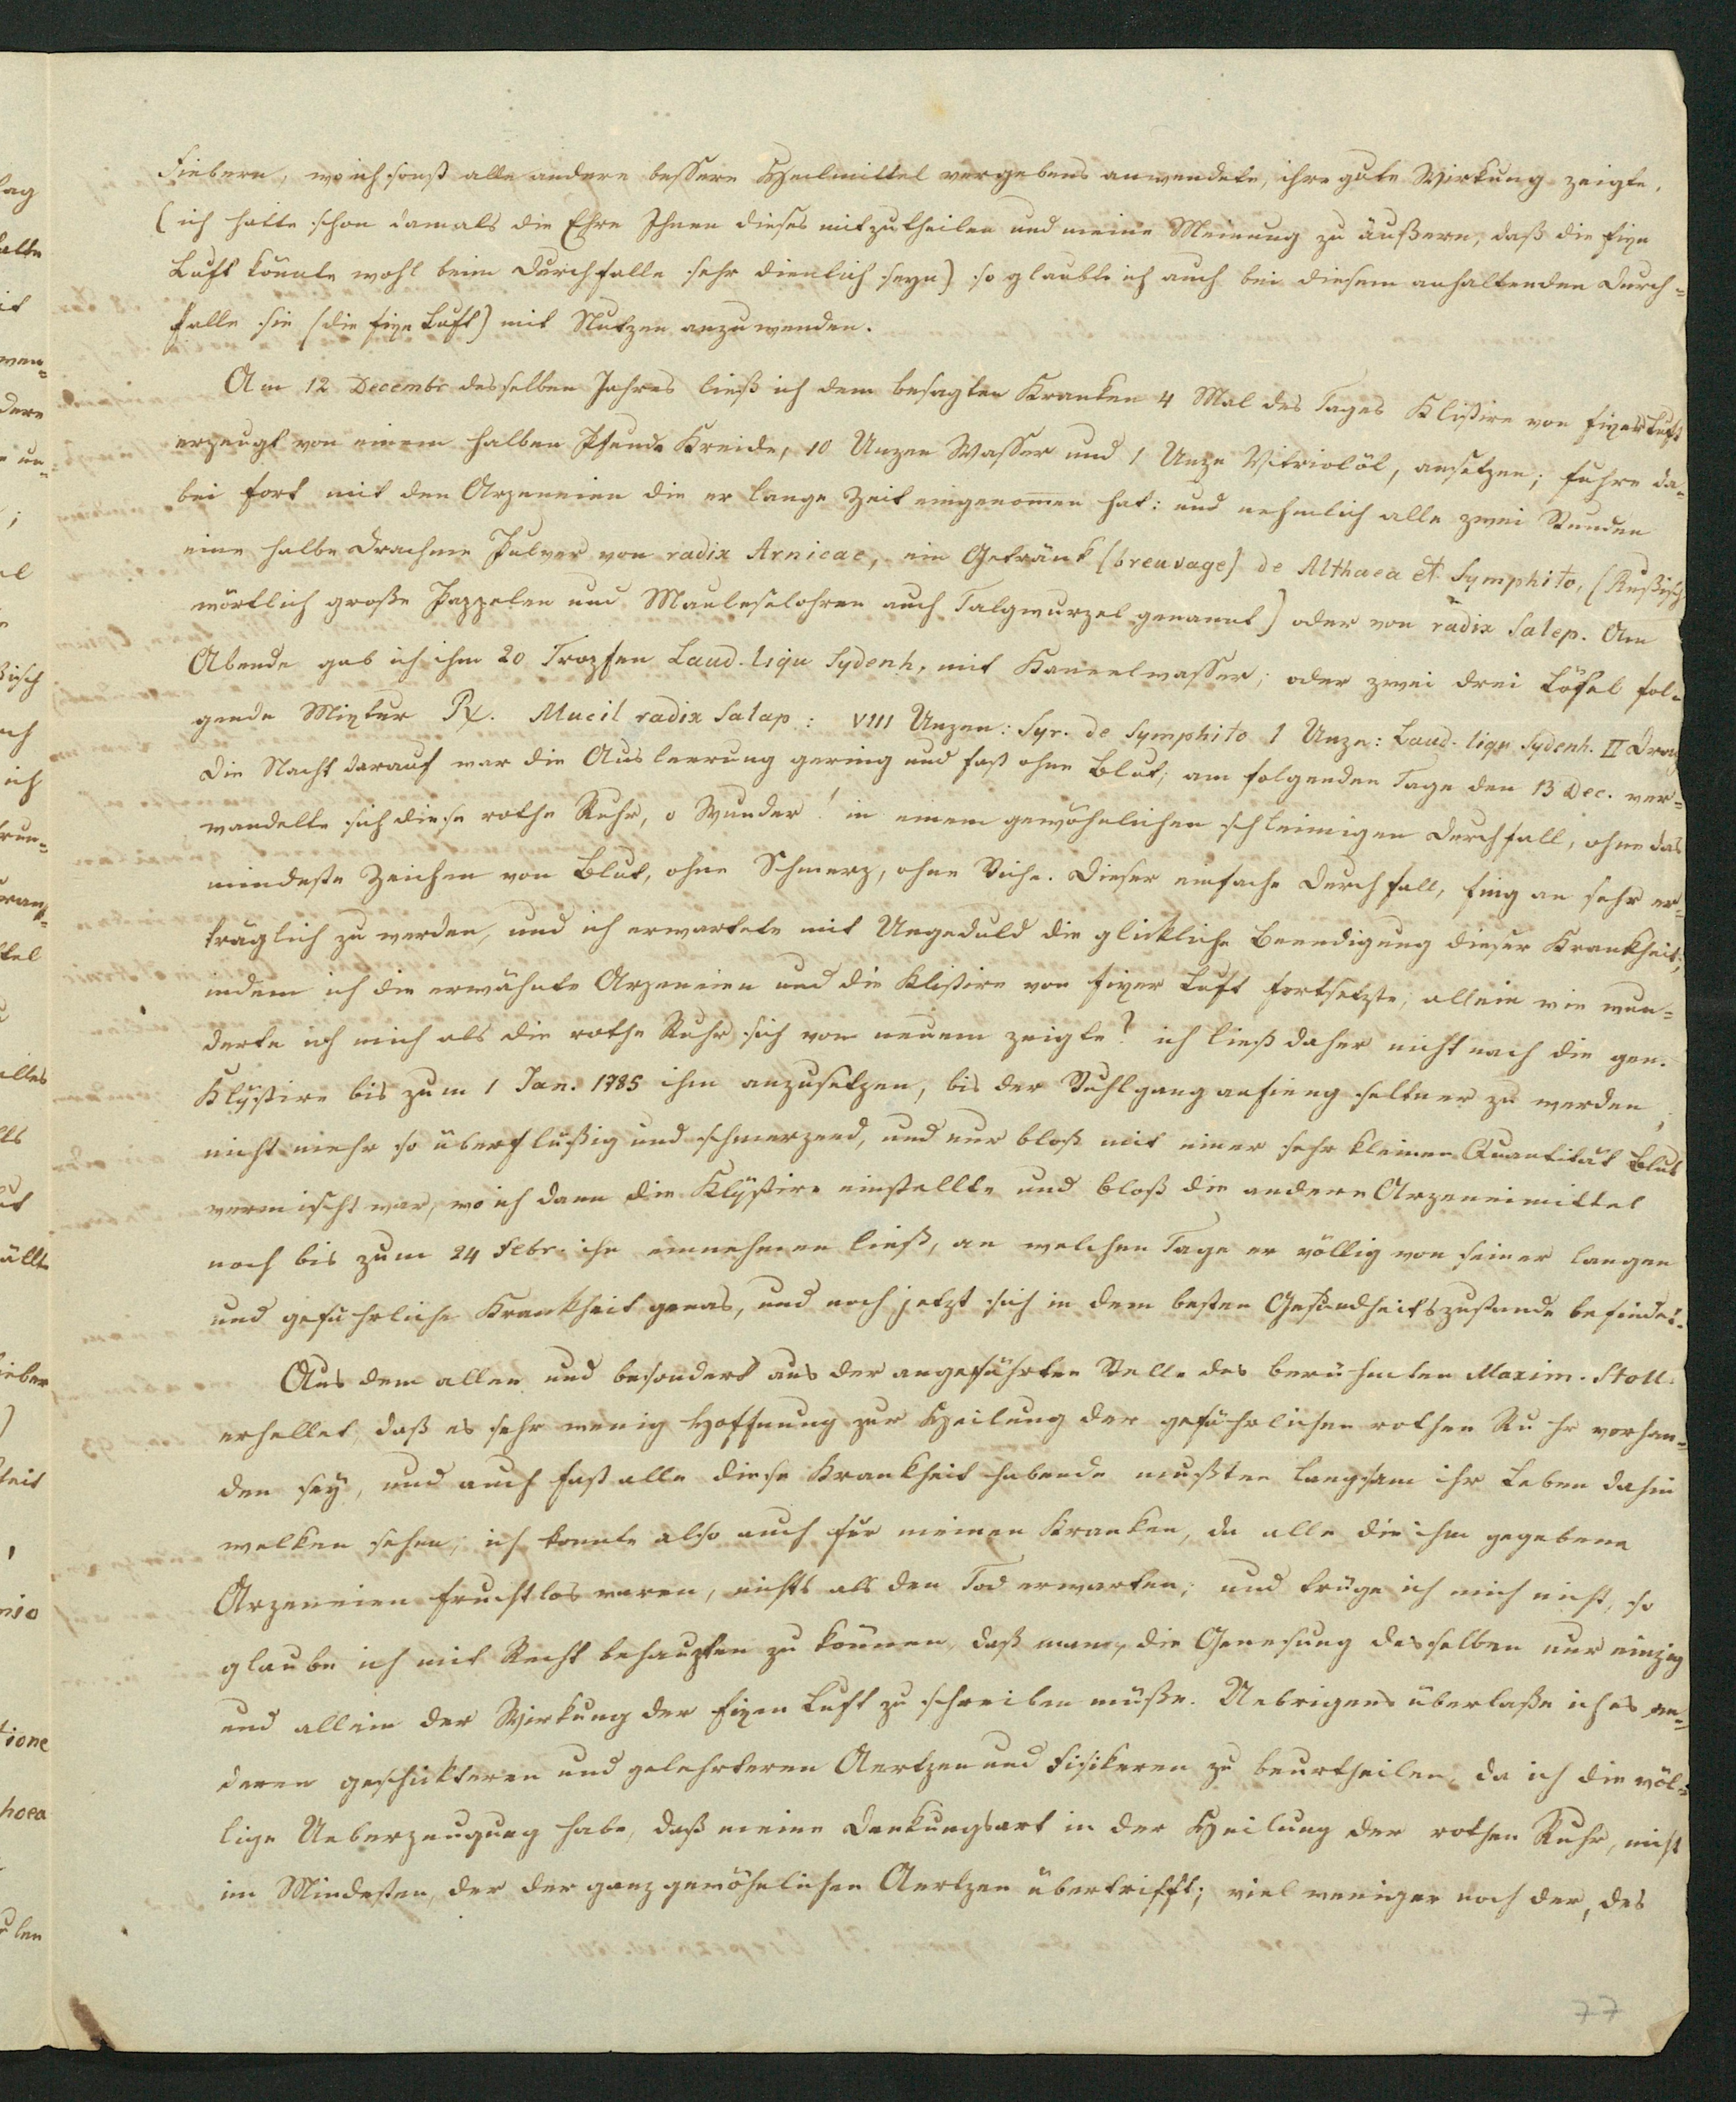 Fiebern, wo ich sonst alle andere bessere Heilmittel vergebens anwendete, ihre gute Wirkung zeigte,
(ich hatte schon damals die Ehre Ihnen dieses mitzutheilen und meine Meinung zu äußern, daß die fixe
Luft könnte wohl beim Durchfalle sehr dienlich seyn) so glaubte ich auch bei diesem anhaltenden Durch=
falle sie (die fixe Luft) mit Nutzen anzuwenden.
Am 12 Decembr desselben Jahres ließ ich dem besagten Kranken 4 Mal des Tages Klistire von fixer Luft
erzeugt von einem halben Pfunde Kreide, 10 Unzen Wasser und 1 Unze Vitriolöl, ansetzen; fuhre da=
bei fort mit den Arzeneien die er lange Zeit eingenomen hat: und nehmlich alle zwei Stunden
eine halbe Drachme Pulver von radix Arnicae, ein Getränk (breuvage) de Althaea et Symphito, (Rußisch
wörtlich große Pappelen und Mauleselohren auch Talgwurzel genannt) oder von radix Salep. Am
Abende gab ich ihm 20 Tropfen Laud. liqu Sydenh. mit Kaneelwasser; oder zwei drei Löfel fol=
gende Mixtur Rx. Mucil radix Salap: VIII Unzen: Syr. de Symphito 1 Unze: Laud. liqu Sydenh. II Drag
Die Nacht darauf war die Ausleerung gering und fast ohne Blut; am folgenden Tage den 13 Dec. ver=
wandelte sich diese rothe Ruhr, o Wunder! in einem gewöhnlichen schleimigen Durchfall, ohne das
mindeste Zeichen von Blut, ohne Schmerz, ohne Stiche. Dieser einfache Durchfall, fing an sehr er=
träglich zu werden, und ich erwartete mit Ungeduld die glickliche Beendigung dieser Krankheit,
indem ich die erwähnte Arzeneien und die Klistire von fixer Luft fortsetzte; allein wie wun=
derte ich mich als die rothe Ruhr sich von neuem zeigte? ich ließ daher nicht nach die gen.
Klÿstire bis zum 1 Jan. 1785 ihm anzusetzen, bis der Stuhlgang anfieng seltner zu werden,
nicht mehr so überflußig und schmerzend, und nur bloß mit einer sehr kleinen Quantität Blut
vermischt war, wo ich dann die Klÿstire einstellte und bloß die andere Arzeneimittel
noch bis zum 24 Febr. ihn einnehmen ließ, an welchen Tage er völlig von seiner langen
und gefährliche Krankheit genas, und noch jetzt sich in dem besten Gesundheitszustande befindet.
Aus dem allen und besonders aus der angeführten Stelle des berühmten Maxim. Stoll.
erhellet, daß es sehr wenig Hoffnung zur Heilung der gefährlichen rothen Ruhr vorhan=
den sey, und auch fast alle diese Krankheit habende mußten langsam ihr Leben dahin
welken sehen, ich konnte also auch für meinen Kranken, da alle die ihm gegebene
Arzeneien fruchtlos waren, nichts als den Tod erwarten; und trüge ich mich nicht, so
glaube ich mit Recht behaupten zu können, daß man, die Genesung desselben nur einzig
und allein der Wirkung der fixen Luft zu schreiben müße. Uebrigens überlaße ich es an=
deren geschickteren und gelehrteren Aertzen und Fisikeren zu beurtheilen, da ich die völ=
lige Ueberzeugung habe, daß meine Denkungsart in der Heilung der rothen Ruhr, nicht
im Mindesten, der der ganz gewöhnlichen Aertzen übertrifft; viel weniger noch der, des
77